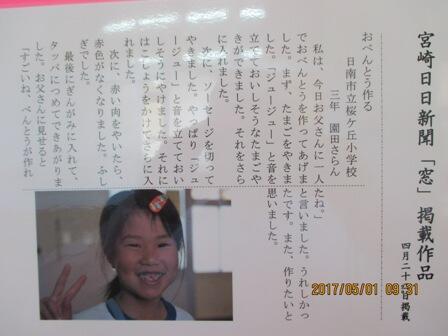 宮崎日日新聞「窓」掲載作品
四月二十 日掲載
おべんとう作る
日南市立桜ケ丘小学校
三年 園田さらん
私は、今日お父さんに一人
でおべんとうを作ってあげま
した。まず、たまごをやきま
した。「ジュージュー」と音を
立てておいしそうなたまごや
きができました。それをさら
に入れました。
次に、ソーセージを切って
やきました。やっぱり「ジュ
ージュー」と音を立てておい
しそうにやけました。それに
はこしょうをかけてさらに入
れました。
次に、赤い肉をやいたら、
赤色がなくなりました。ふし
ぎでした。
最後にぎんがみに入れて、
タッパにつめてできあがりま
した。お父さんに見せると
「すごいね、べんとうが作れ
たね。」
と言いました。うれしかっ
たです。また、作りたいと
思いました。
2017/05/01 09:31